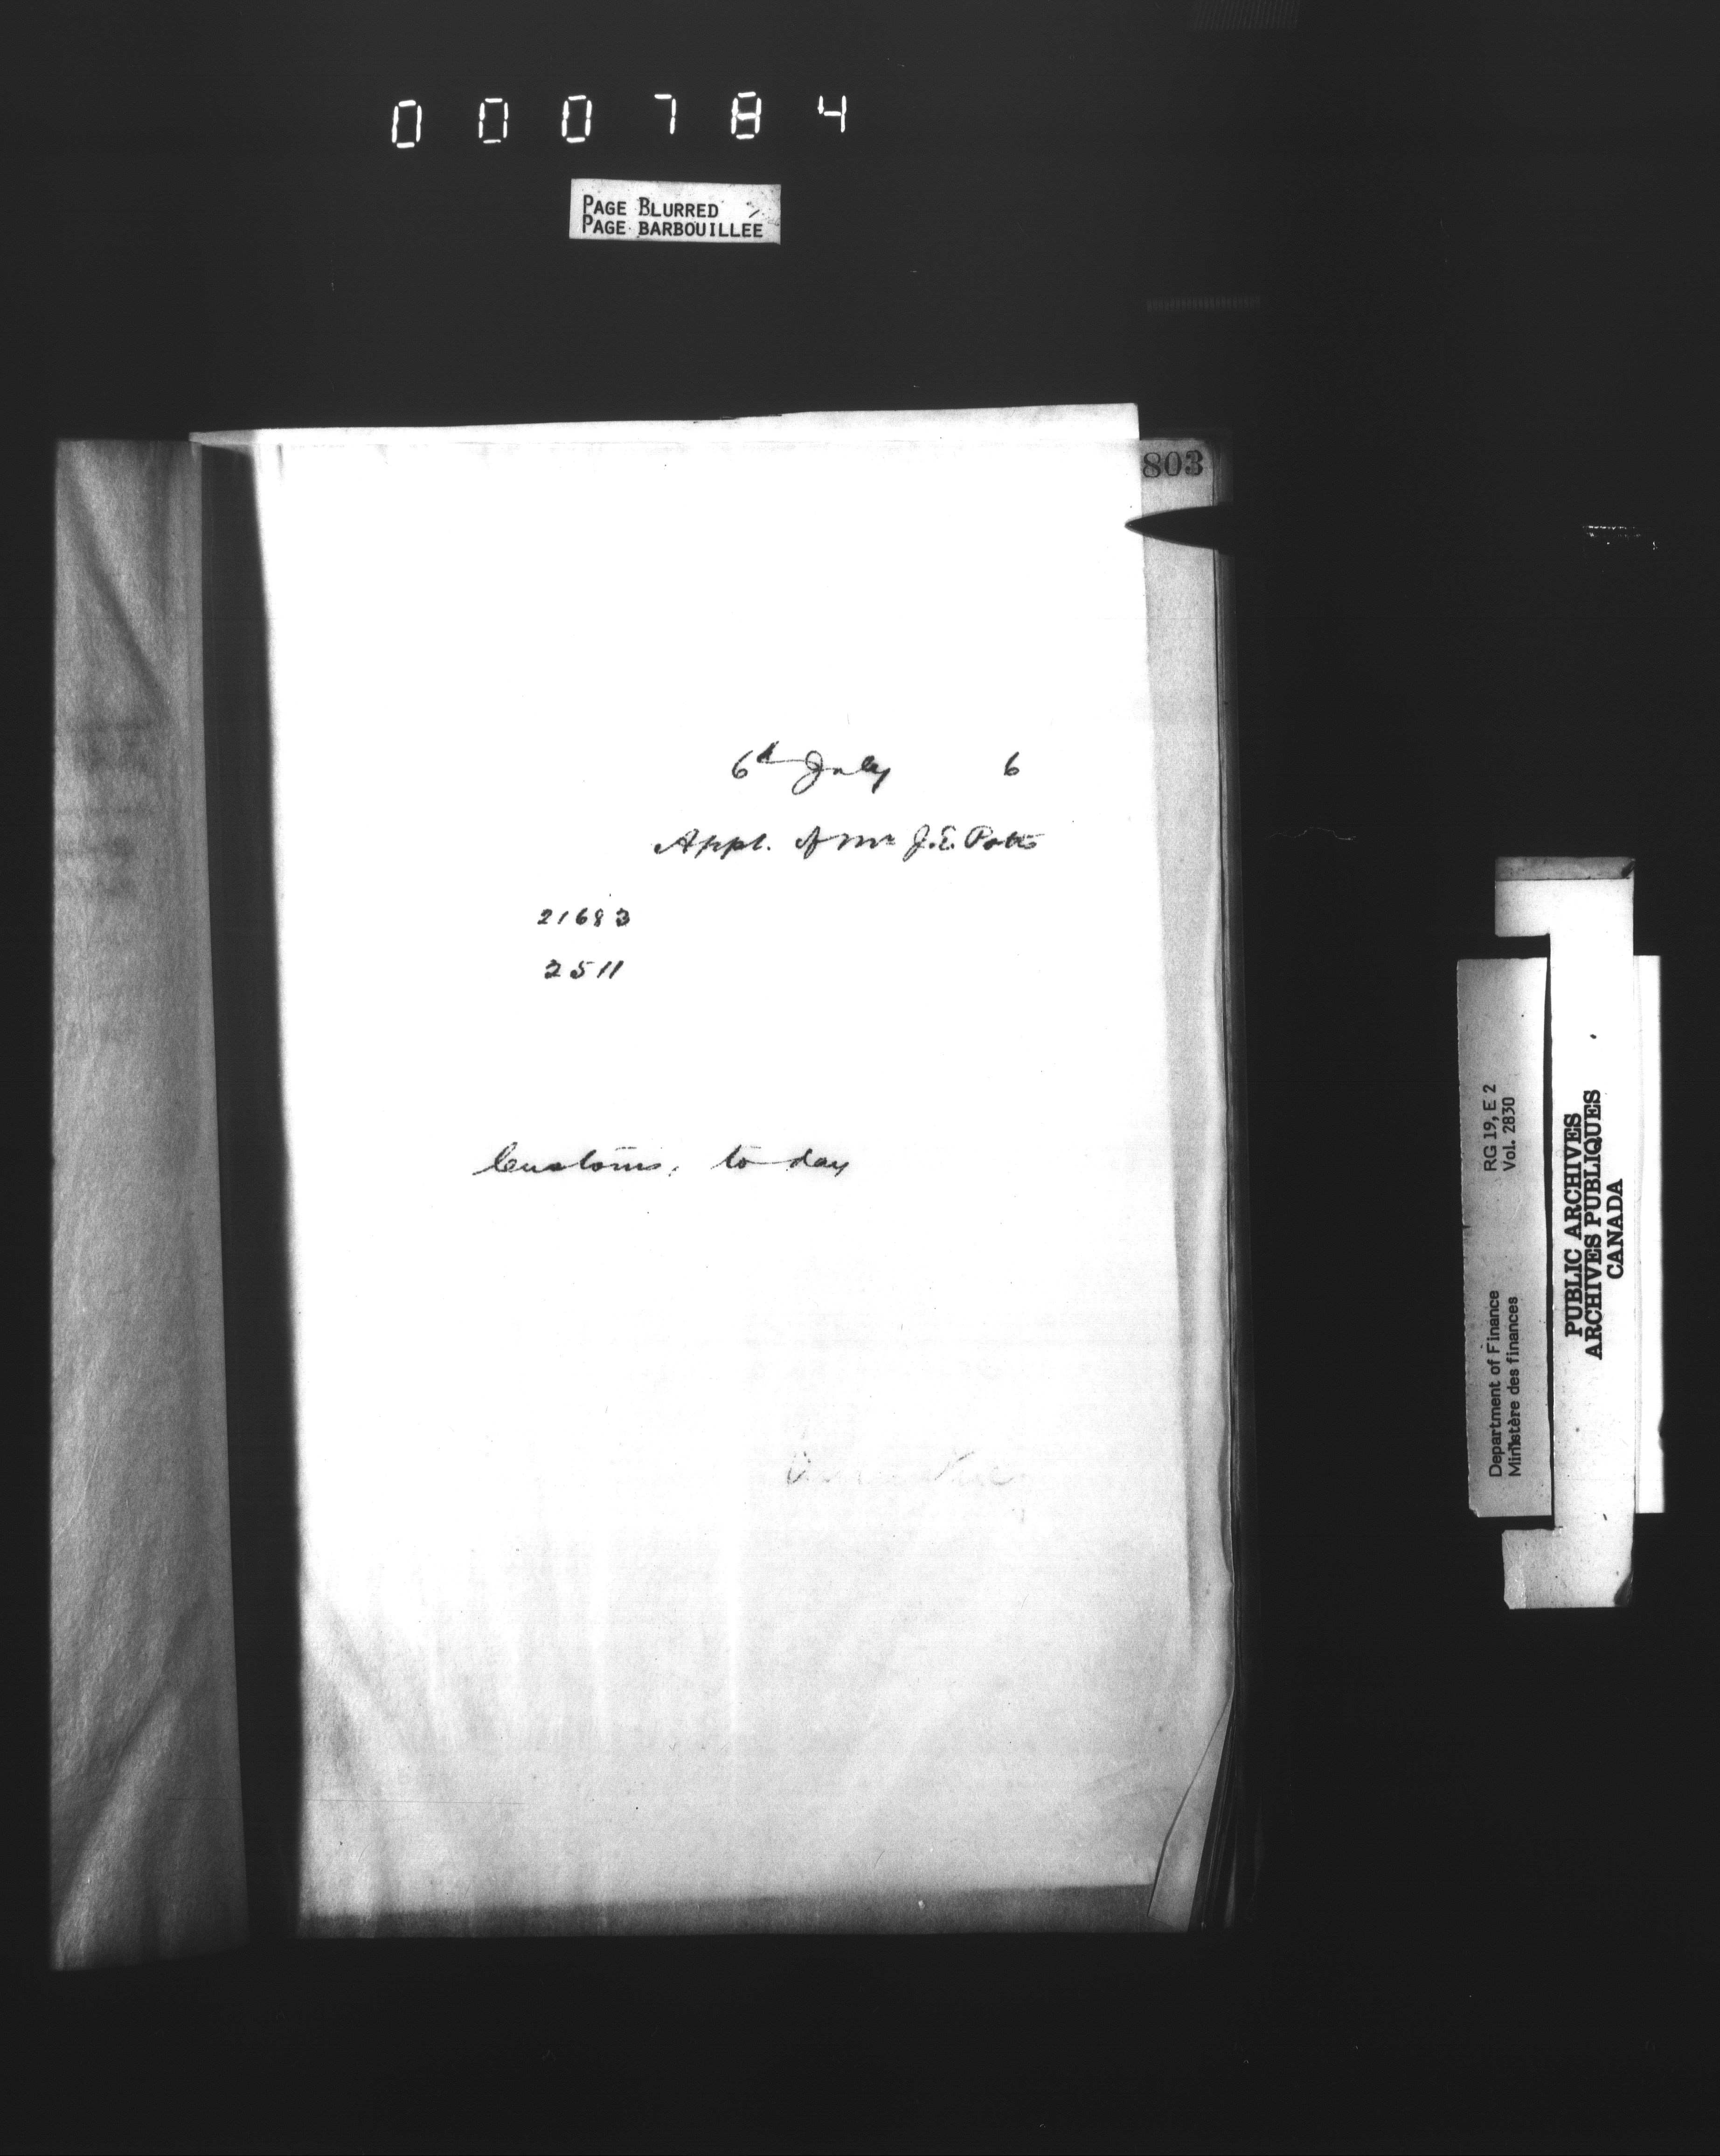 000784
PAGE BLURRED
PAGE BARBOUILLÉE
803
6th July 6
Appl. of Mr J.E. Potts
21683
2511
Customs, to day
Department of Finance RG 19, E 2
Ministère des finances Vol. 2830
PUBLIC ARCHIVES
ARCHIVES PUBLIQUES
CANADA